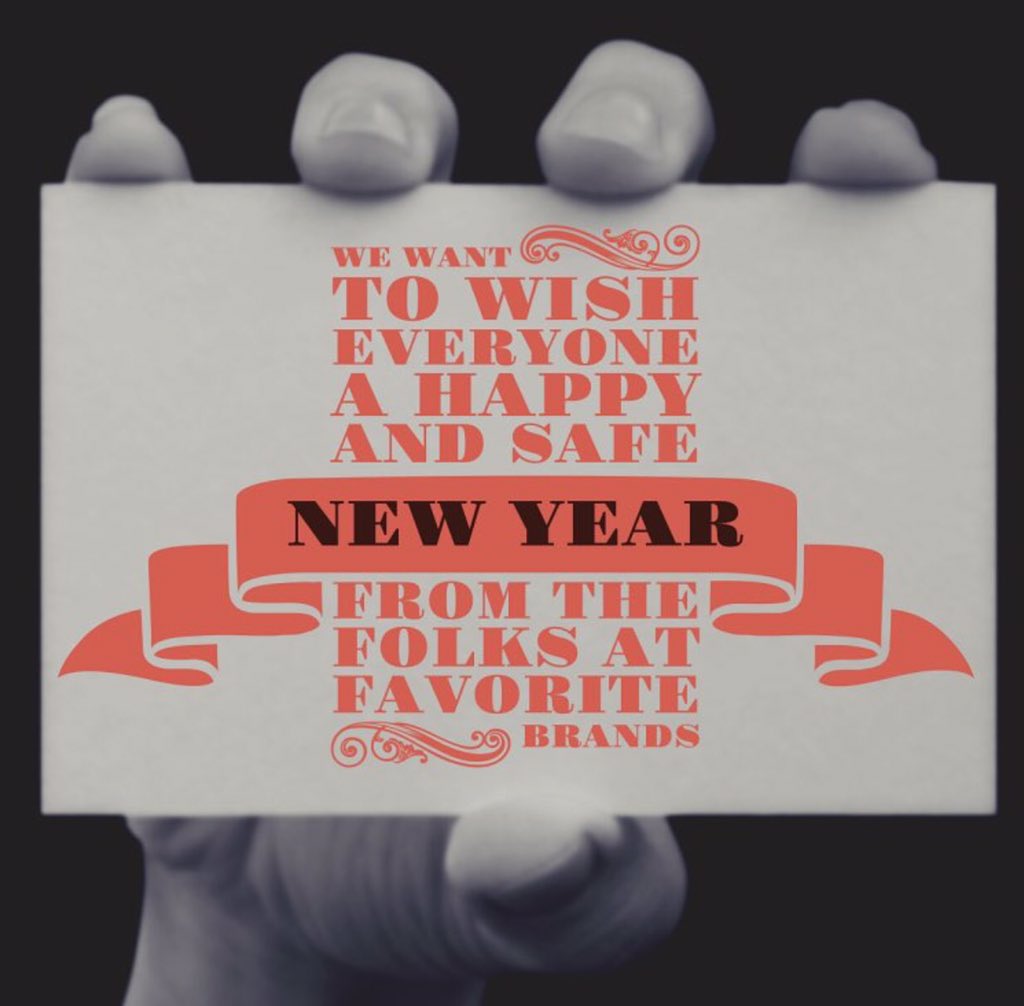 WE WANT
TO WISH
EVERYONE
A HAPPY
AND SAFE
NEW YEAR
FROM THE
FOLKS AT
FAVORITE
BRANDS